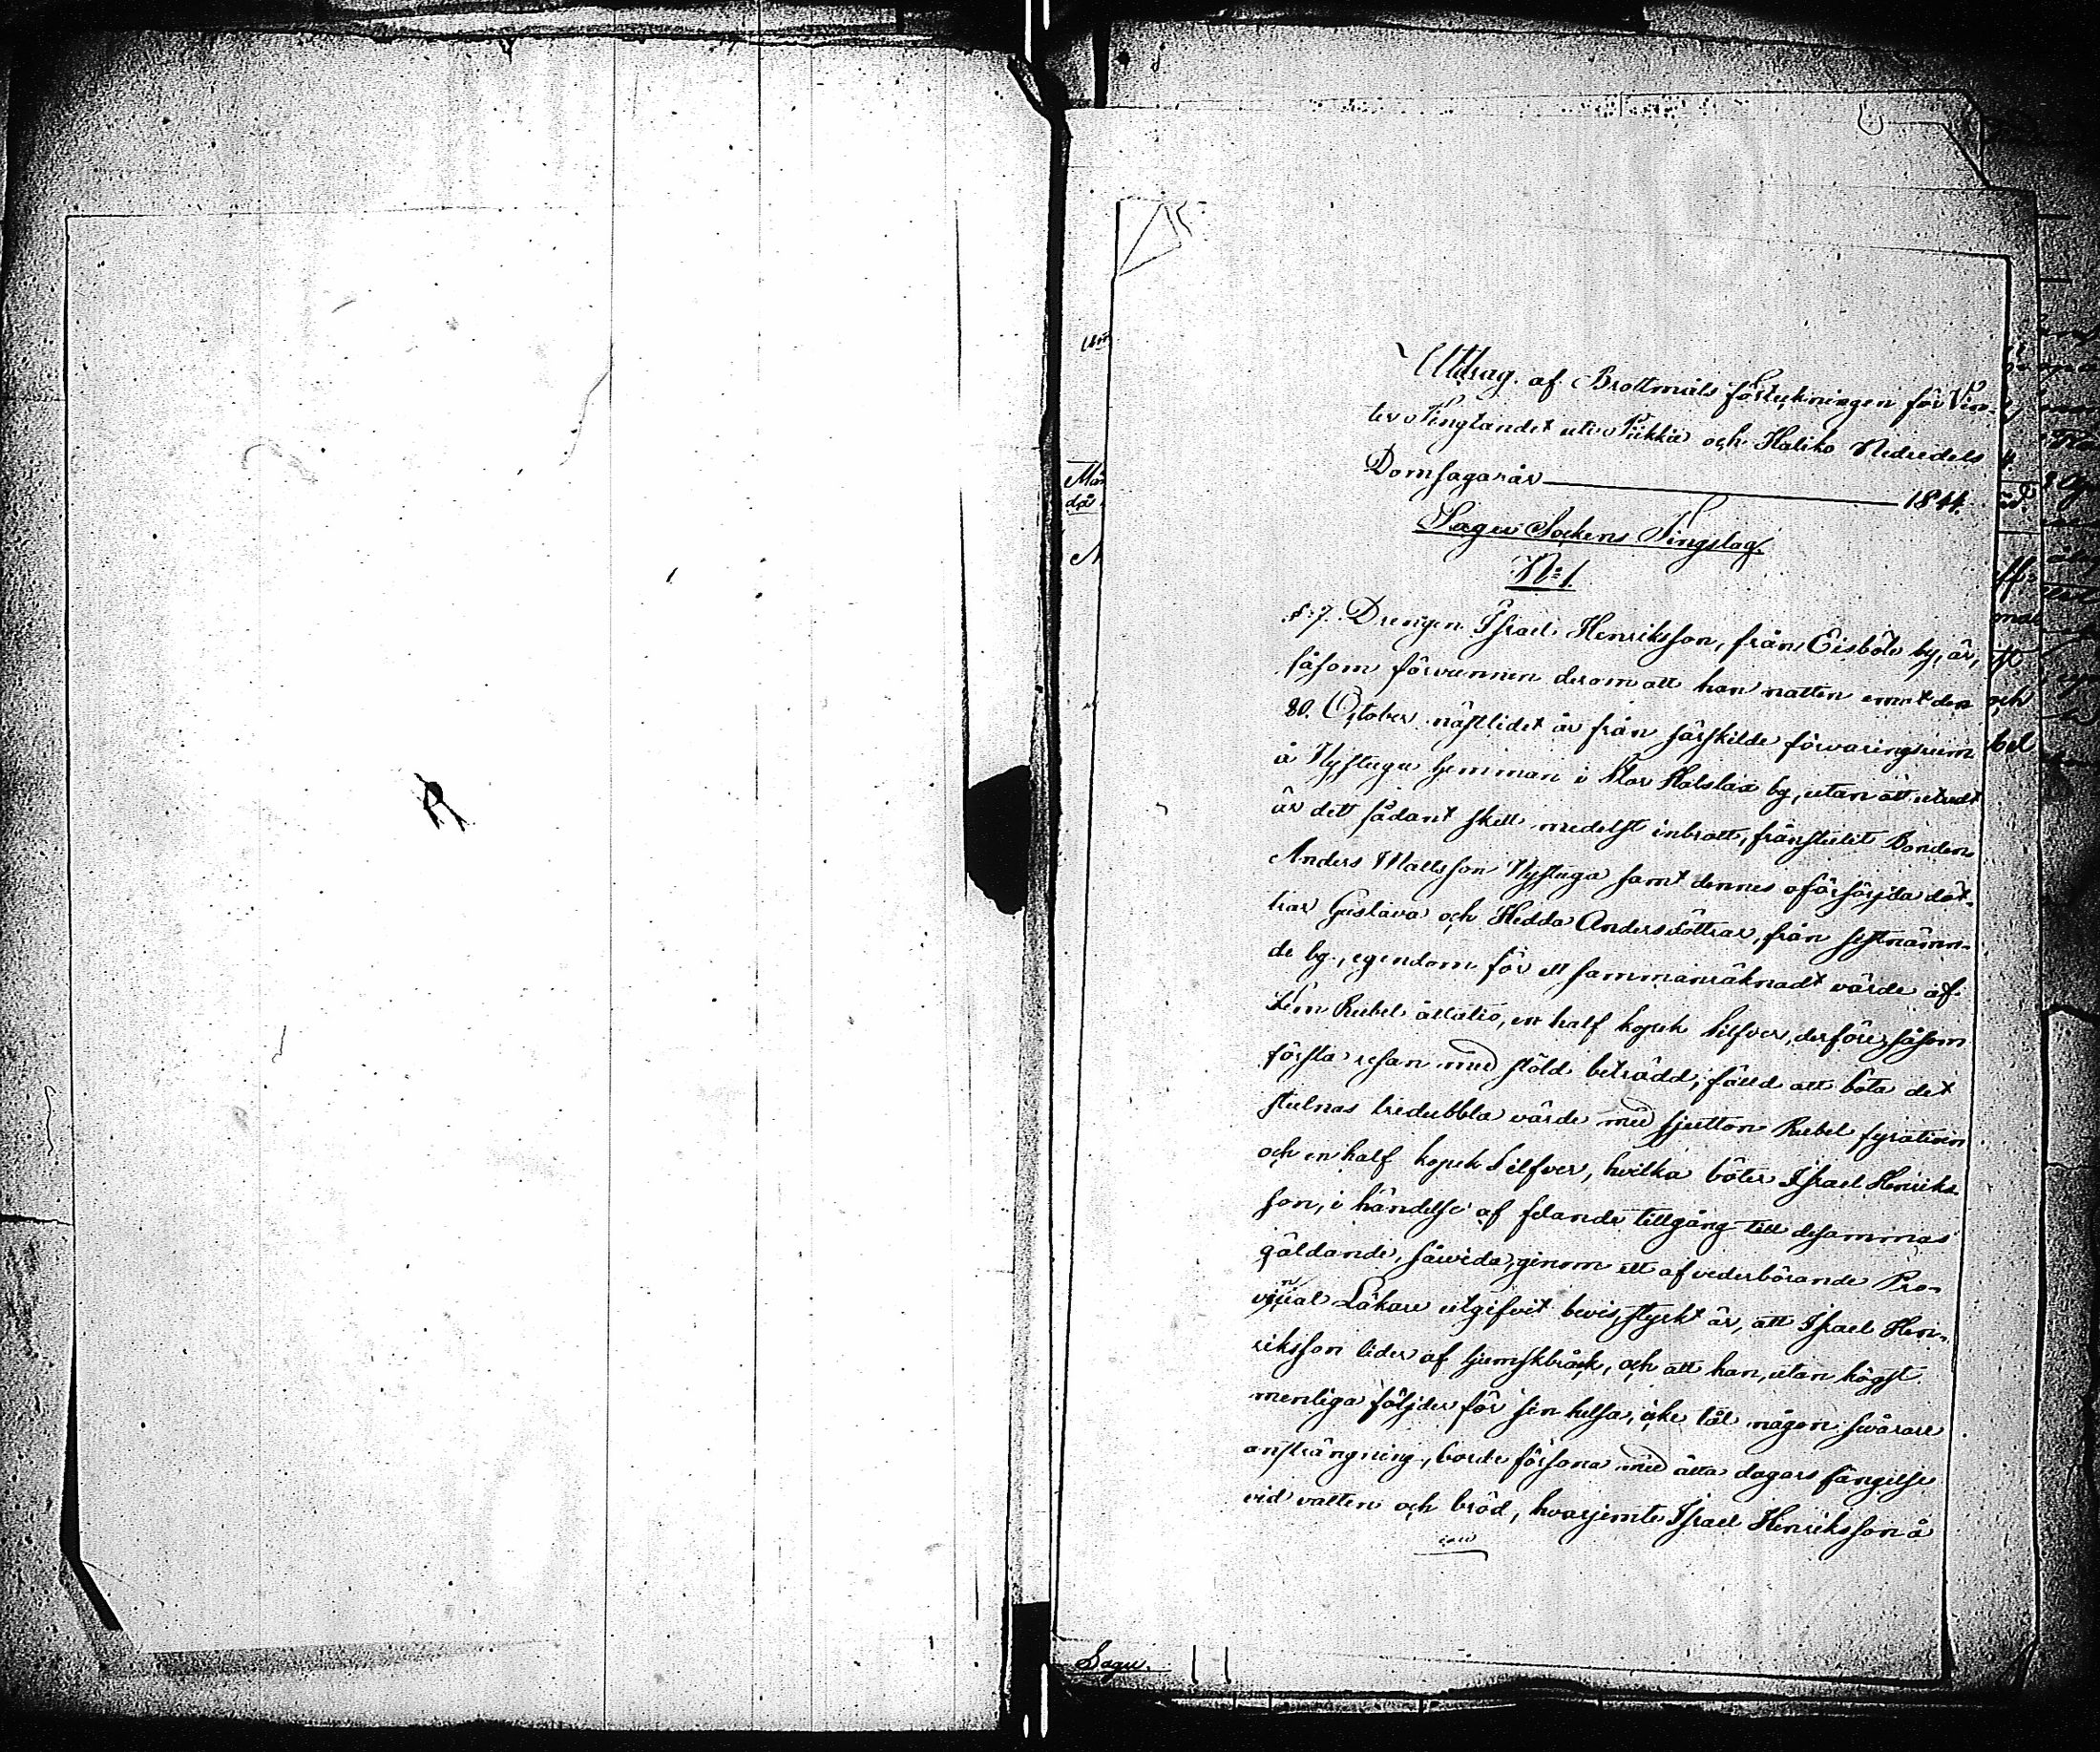 Utdrag af Brottmåls förteckningen för Vin-
ter Tingtandet uti Piikkie och Haliko Nedredels
Domsaga år 1844.
Sagu Sockens Tingslag.
N:1.
§:7. Drengen Israel Henriksson, från Eisböle by, är,
såsom förvunnen derom att han natten emot den
30. October nästlidet år från särskilde förvaringsrum
å Nystuga hemman i Stor Halslax by, utan att utredt
är dett sådant skett medelst inbrott, frånstulit Bonden
Anders Mattsson Nystuga samt dennes oförsörjda dött-
rar Gustava och Hedda Andersdöttrar, från sistnämn-
de by, egendom för ett sammanräknadt värde af
Fem Rubel åttatio, en half kopek Silfver, derföre, såsom
första resan med stöld beträdd, fälld att böta det
stulnas tredubbla värde med sjutton Rubel fyratioen
och en half kopek Silfver, hvilka böter Israel Henriks-
son, i händelse af felande tillgång till desammas
gäldande, såvida, genom ett af vederbörande Pro-
vincial Läkare utgifvit bevis, styrkt är, att Israel Hen-
riksson lider af ljumskbråck, och att han, utan högst
menliga följder för sin helsa, icke tål någon svårare
ansträngning, borde försona med åtta dagars fängelse
vid vatten och bröd, hvarjemte Israel Henriksson å
Sagu.